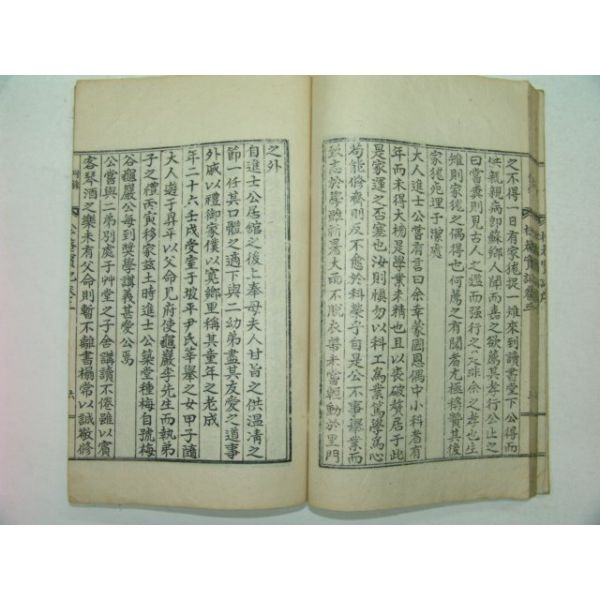 之不得一日有家㹨捉一雉來到讀書堂下公得而
供親親病卽蘇鄕人聞而喜之欲薦其孝行公止之
曰嘗糞則見古人之蘊而强行之非余之孝也生
雉則家㹨之偶得也何薦之有聞者尤極稱贊其後
家㹨死埋于潔處
大人進士公嘗有言曰余幸蒙國恩偶中小科者有
年而未得大榜是學業未精也且以喪破廢居于此
是家運之否塞也汝則極勿以科工爲業篤學爲心
苟能修齊則反不愈於科業乎自是公不事擧業而
致志於學雖祈寒大雨不脫衣帶未嘗輕動於里門
之外
自進士公居館之後上奉母夫人甘旨之供溫凊之
節一任其口體之適下與二幼弟盡其友愛之道事
外戚以禮御家僕以寬鄕里稱其童年之老成
年二十六壬戌受室于坡平尹氏莘擧之女甲子隨
大人遊于昇平以父命見府使龜巖李先生而執弟
子之禮丙寅移家玆土時進士公築堂種梅自號梅
谷龜巖公每到奬學講義甚愛公焉
公嘗與二弟別處于艸堂之子舍講讀不倦雖以賓
客琴酒之樂未有父命則暫不離書榻常以誠敬修